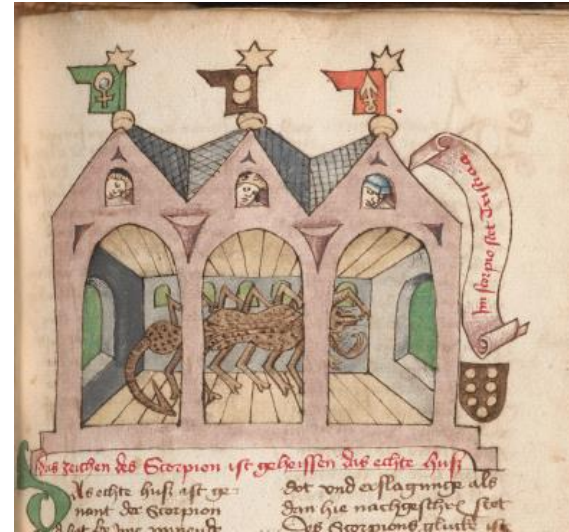 Im scorpio stet Tristicia
Das zeichen des Scorpion ist geheissen das echte husz
Das echte husz ist ge-
nant der Scorpion
dot vnd erslagunge als
dan hie nachgeschr stet
Des Scorpions glucke ist